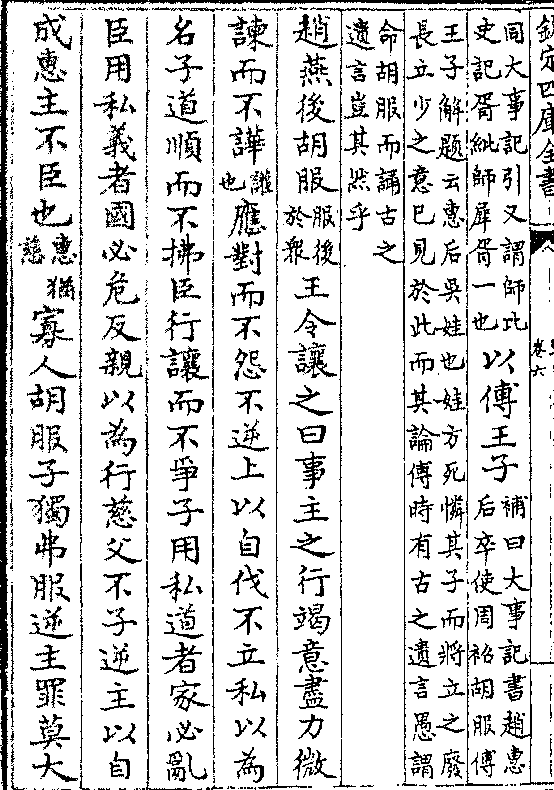 欽定四庫全書
卷六
同大事記引又謂師比
史記胥紕師犀胥一也
以傅王子
補曰大事記書趙惠
后卒使周袑胡服傅
王子解題云惠后吳娃也娃方死憐其子而將立之廢
長立少之意已見於此而其論傅時有古之遺言愚謂
命胡服而誦古之
遺言豈其然乎
趙燕後胡服
服後
於衆
王令讓之曰事主之行竭意盡力微
諫而不譁
譁讙
也
應對而不怨不逆上以自伐不立私以為
名子道順而不拂臣行讓而不爭子用私道者家必亂
臣用私義者國必危反親以為行慈父不子逆主以自
成惠主不臣也
惠猶
慈
寡人胡服子獨弗服逆主罪莫大